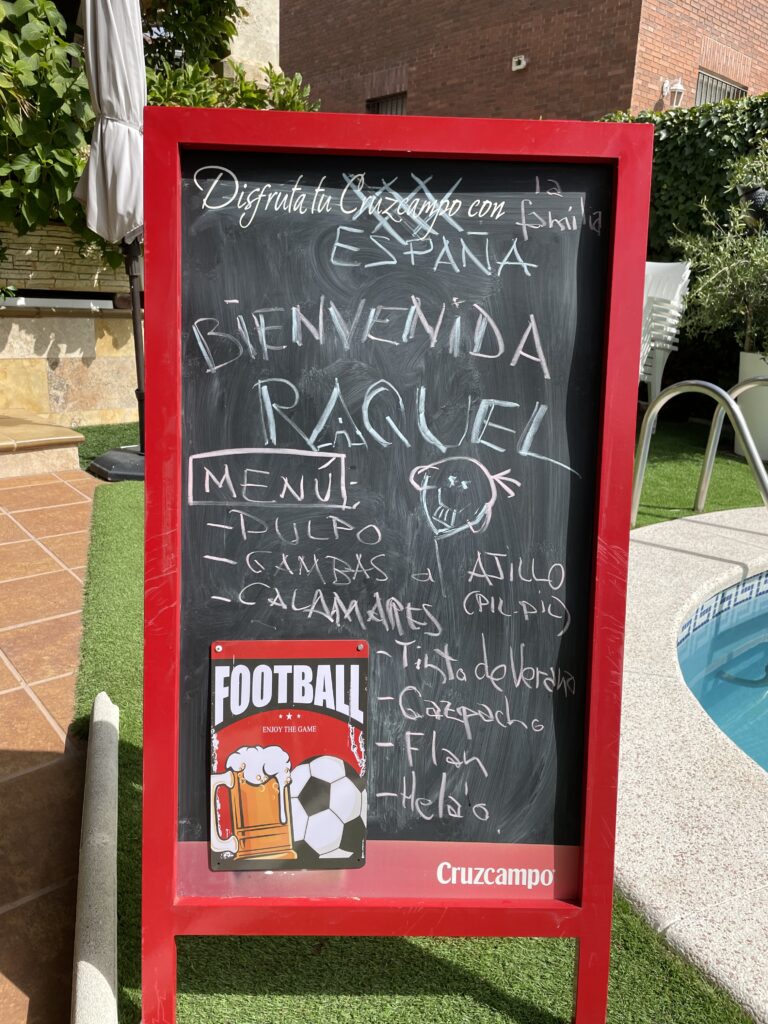 Disfruta tu Cruzcampo con la familia
ESPAÑA
BIENVENIDA
RAQUEL
MENÚ:
- PULPO
- GAMBAS al AJILLO
(PIL-PIL)
- CALAMARES
- Tinto de Verano
- Gazpacho
- Flan
- Hela'o
FOOTBALL
ENJOY THE GAME
Cruzcampo